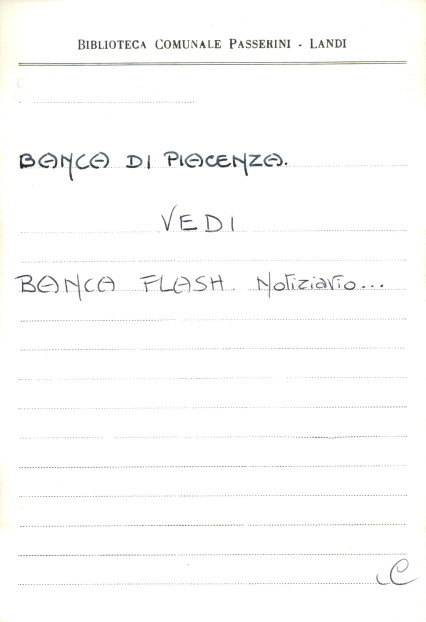 BIBLIOTECA COMUNALE PASSERINI - LANDI
BANCA DI PIACENZA.
VEDI
BANCA FLASH. Notiziario...
C